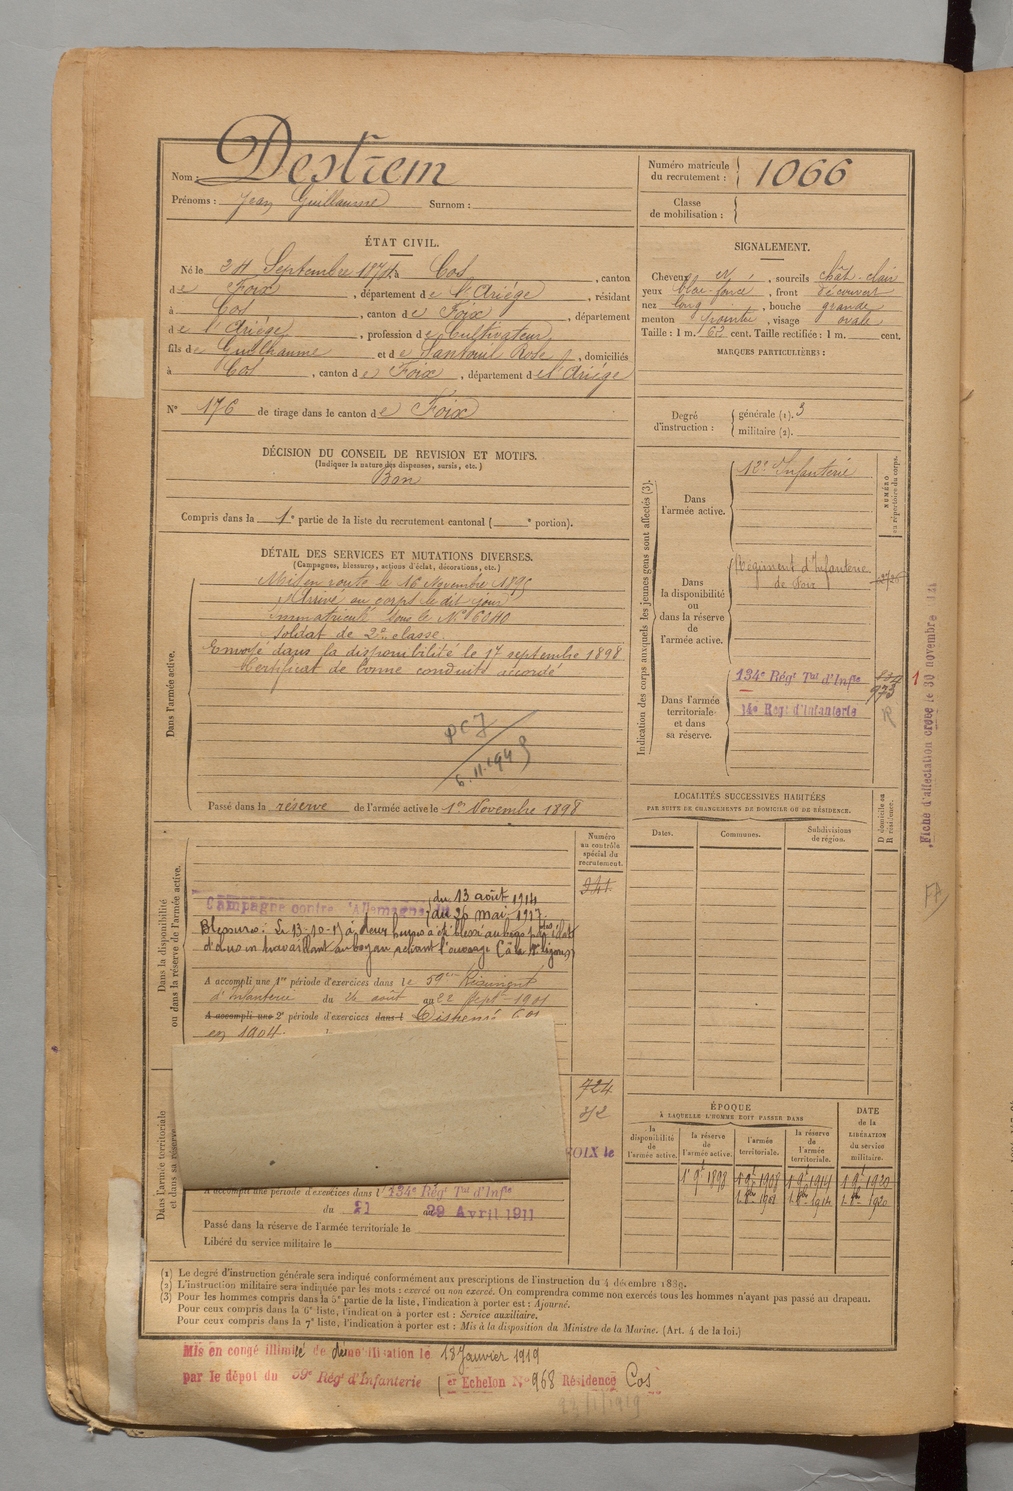 Nom : Destrem
Prénoms : Jean Guillaume Surnom :
Numéro matricule du recrutement : 1066
Classe de mobilisation :
ÉTAT CIVIL.
Né le 24 Septembre 1874 à Cos, canton
de Foix, département de l'Ariège, résidant
à Cos, canton de Foix, département
de l'Ariège, profession de Cultivateur
fils de Guilhaume et de Santouil Rose, domiciliés
à Cos, canton de Foix, département de l'Ariège
N° 176 de tirage dans le canton de Foix
SIGNALEMENT.
Cheveux et, sourcils chât-clair
yeux bleu-foncé, front découvert
nez long, bouche grande
menton pointu, visage ovale
Taille : 1 m. 62 cent. Taille rectifiée : 1 m. cent.
MARQUES PARTICULIÈRES :
Degré d'instruction : générale (1). 3
militaire (2).
DÉCISION DU CONSEIL DE REVISION ET MOTIFS.
(Indiquer la nature des dispenses, sursis, etc.)
Bon
Compris dans la 1e partie de la liste du recrutement cantonal ( e portion).
DÉTAIL DES SERVICES ET MUTATIONS DIVERSES.
(Campagnes, blessures, actions d'éclat, décorations, etc.)
Dans l'armée active.
Mis en route le 16 Novembre 1895
Arrivé au corps le dit jour
immatriculé sous le N° 6040
soldat de 2e classe.
Envoyé dans la disponibilité le 17 septembre 1898
Certificat de bonne conduite accordé
6.11.1949
Passé dans la réserve de l'armée active le 1er Novembre 1898
Indication des corps auxquels les jeunes gens sont affectés (3).
NUMÉRO au répertoire du corps.
Dans l'armée active.
122 Infanterie
Dans la disponibilité ou dans la réserve de l'armée active.
Régiment d'Infanterie
de Foix
Dans l'armée territoriale et dans sa réserve.
134e Régt Tal d'Infie
973
14e Regt d'Infanterie
R
1
Fiche d'affectation créée le 30 novembre
LOCALITÉS SUCCESSIVES HABITÉES
PAR SUITE DE CHANGEMENTS DE DOMICILE OU DE RÉSIDENCE.
Dates. Communes. Subdivisions de région. D domicile ou R résidence.
Dans la disponibilité ou dans la réserve de l'armée active.
Numéro au contrôle spécial du recrutement.
341
Campagne contre l'Allemagne du 13 août 1914
au 26 mai 1917.
Blessures : Le 13-10-15 à deux heures a été blessé au bras par des éclats
d'obus en travaillant au boyau reliant l'ouvrage
A accompli une 1re période d'exercices dans le 59e Régiment
d'Infanterie du 26 août au 22 Sept 1901
A accompli une 2e période d'exercices dans l Dispensé
en 1904.
Dans l'armée territoriale et dans sa réserve
724
FOIX le
A accompli une période d'exercices dans l 134e Régt Tal d'Infie
du 21 au 29 Avril 1911
Passé dans la réserve de l'armée territoriale le
Libéré du service militaire le
ÉPOQUE
À LAQUELLE L'HOMME DOIT PASSER DANS
la disponibilité de l'armée active. la réserve de l'armée active. l'armée territoriale. la réserve de l'armée territoriale.
DATE de la LIBÉRATION du service militaire.
1 9e 1898 1 9e 1908 1 9e 1914 1 9e 1920
1. 8bre 1908 1. 8bre 1914 1. 8bre 1920
(1) Le degré d'instruction générale sera indiqué conformément aux prescriptions de l'instruction du 4 décembre 1889.
(2) L'instruction militaire sera indiquée par les mots : exercé ou non exercé. On comprendra comme non exercés tous les hommes n'ayant pas passé au drapeau.
(3) Pour les hommes compris dans la 5e partie de la liste, l'indication à porter est : Ajourné.
Pour ceux compris dans la 6e liste, l'indication à porter est : Service auxiliaire.
Pour ceux compris dans la 7e liste, l'indication à porter est : Mis à la disposition du Ministre de la Marine. (Art. 4 de la loi.)
Mis en congé illimité de démobilisation le 18 Janvier 1919
par le dépôt du 59e Régt d'Infanterie 1er Echelon N° 968 Résidence Cos
23/1/1919